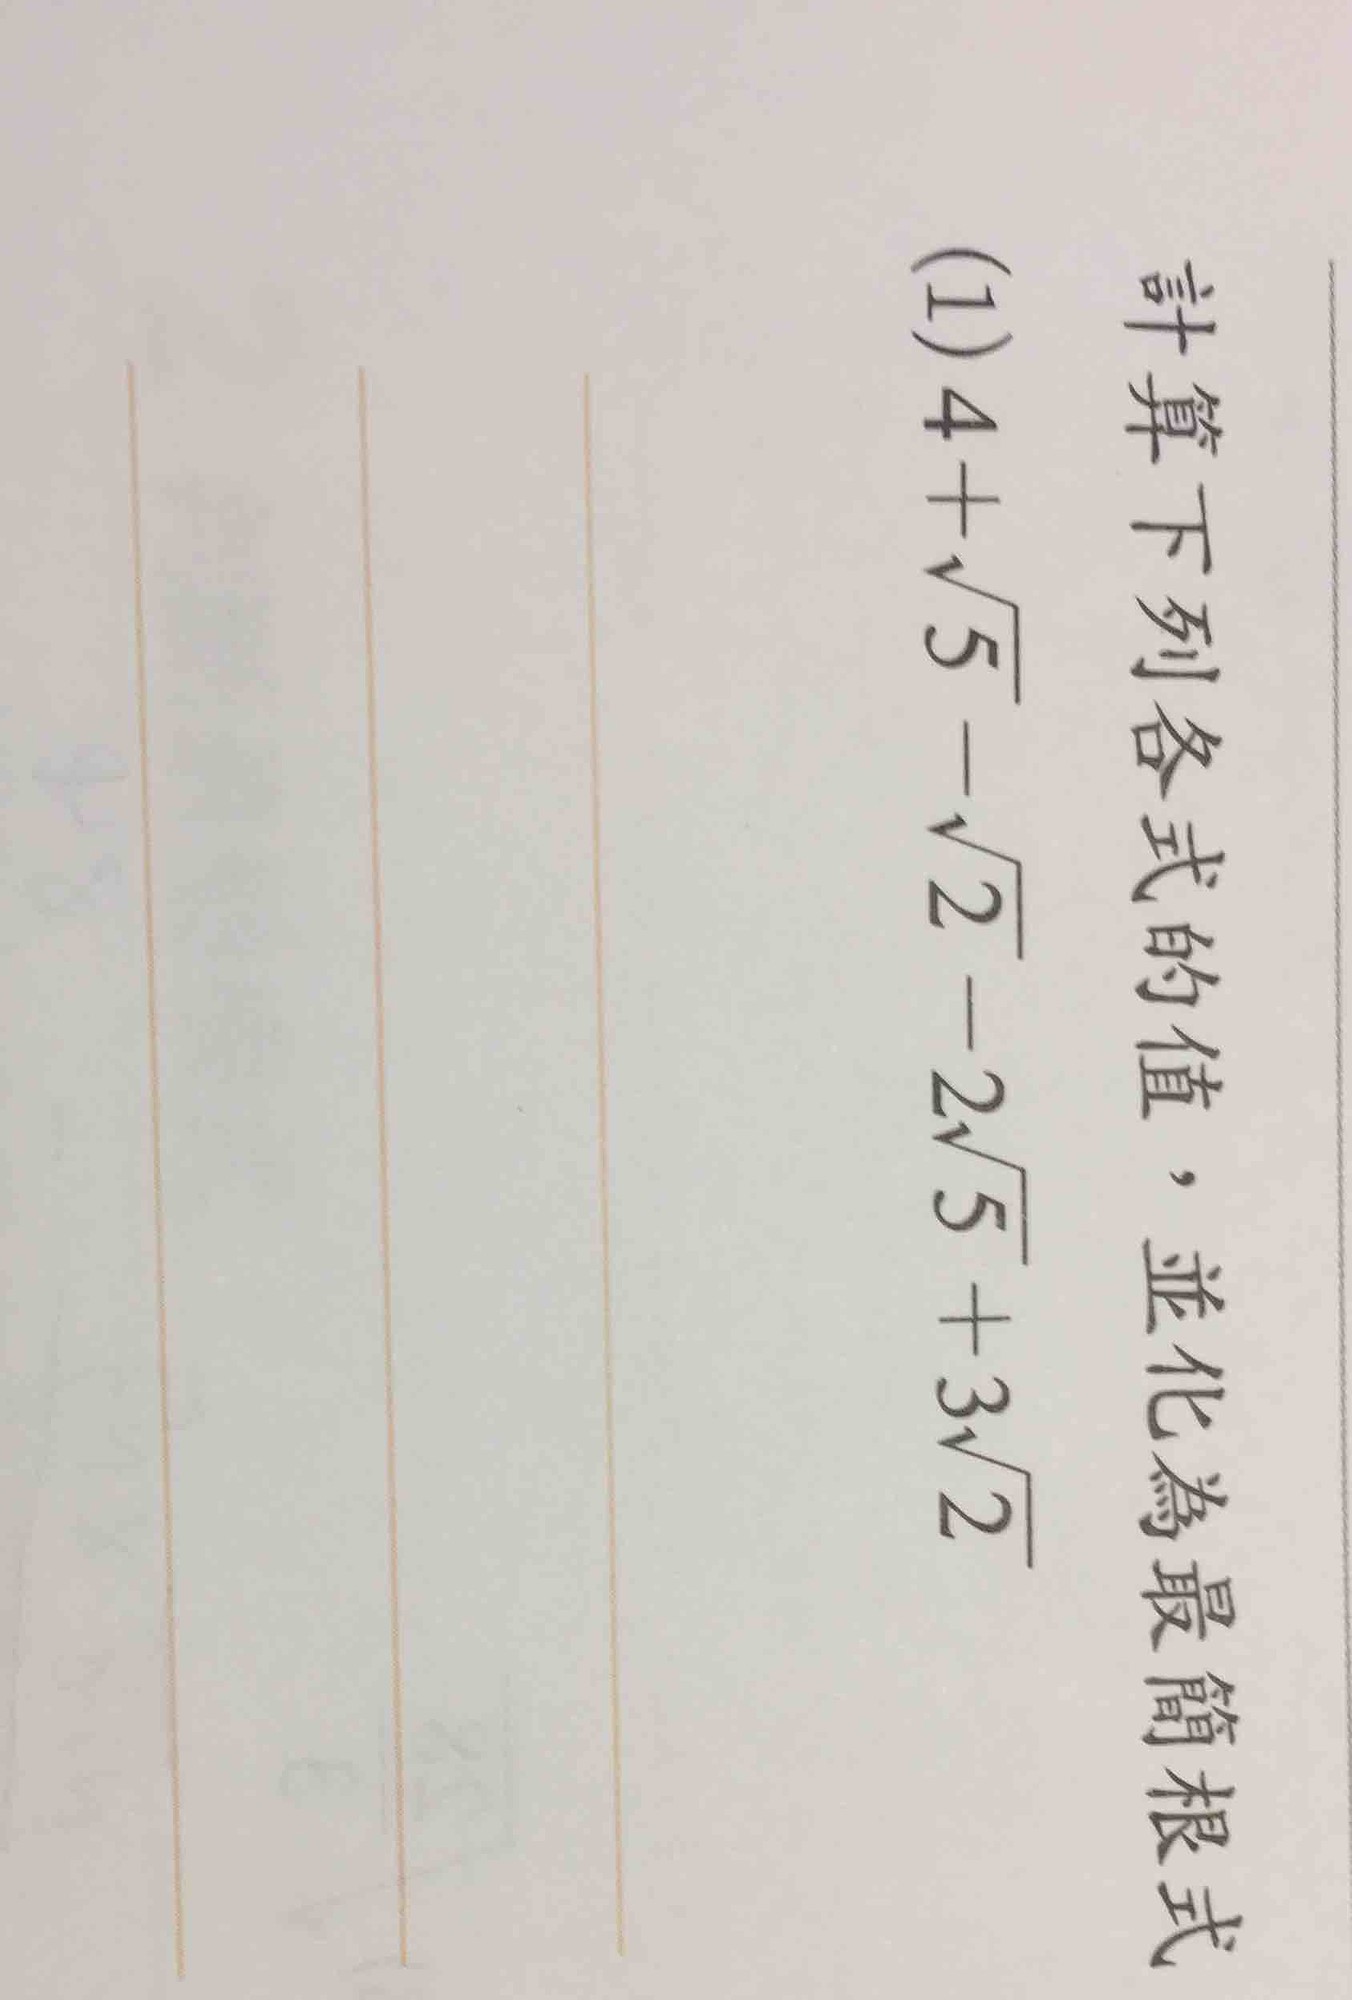 計算下列各式的值，並化為最簡根式
(1) 4+√5−√2−2√5+3√2